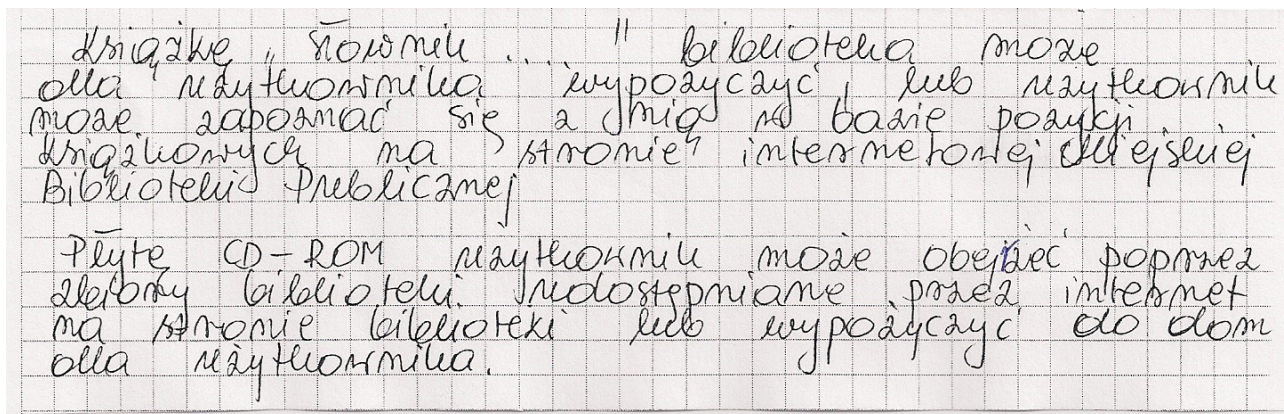 Książkę „Słownik ...." biblioteka może
dla użytkownika wypożyczyć, lub użytkownik
może zapoznać się z nią w bazie pozycji
książkowych na stronie internetowej Miejskiej
Biblioteki Publicznej
Płytę CD-ROM użytkownik może obejrzeć poprzez
zbiory biblioteki udostępniane przez internet
na stronie biblioteki lub wypożyczyć do dom
dla użytkownika.